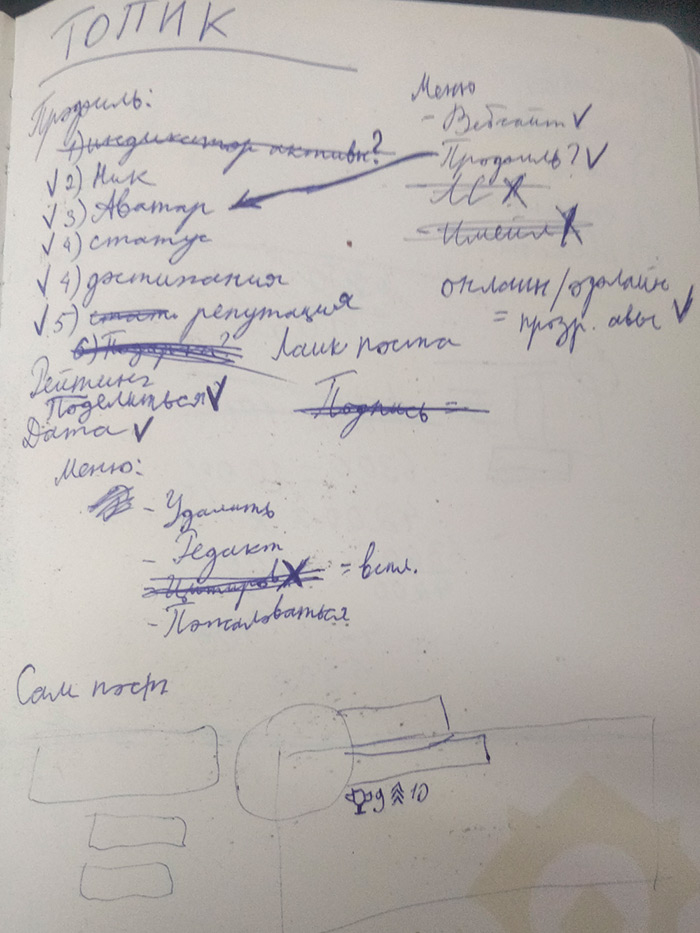 ТОПИК
Профиль:
1) индикатор активн.?
✓ 2) Ник
✓ 3) Аватар
✓ 4) статус
✓ 4) достижения
✓ 5) стат. репутация
6) Подарки?
Лайк поста
Рейтинг
Поделиться ✓
Дата ✓
Подпись =
Меню
- Вебсайт ✓
- Профиль? ✓
- ЛС X
- Имейл X
онлайн/офлайн
= прозр. авы ✓
Меню:
- Удалить
- Редакт
- Цитиров X = вспл.
- Пожаловаться
Сам пост
9 10